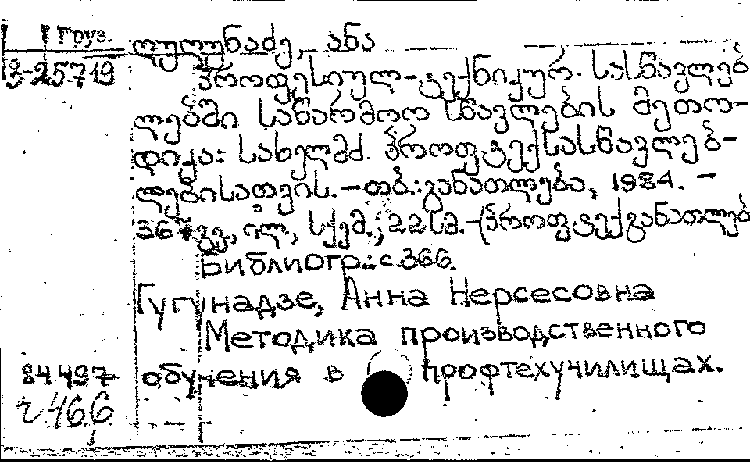 Груз.
3-25719
ღუღუნაძე, ანა
პროფესიულ-ტექნიკურ სასწავლებ
ლებში საწარმოო სწავლების მეთო-
დიკა: სახელმძ. პროფ.ტექსასწავლებ-
ლებისათვის.-თბ.:განათლება, 1984. -
367გვ., ილ., სქემ.; 22სმ.-(პროფტექგანათლებ
Библиогр.: с.366.
Гугунадзе, Анна Нерсесовна
Методика производственного
обучения в профтехучилищах.
84497